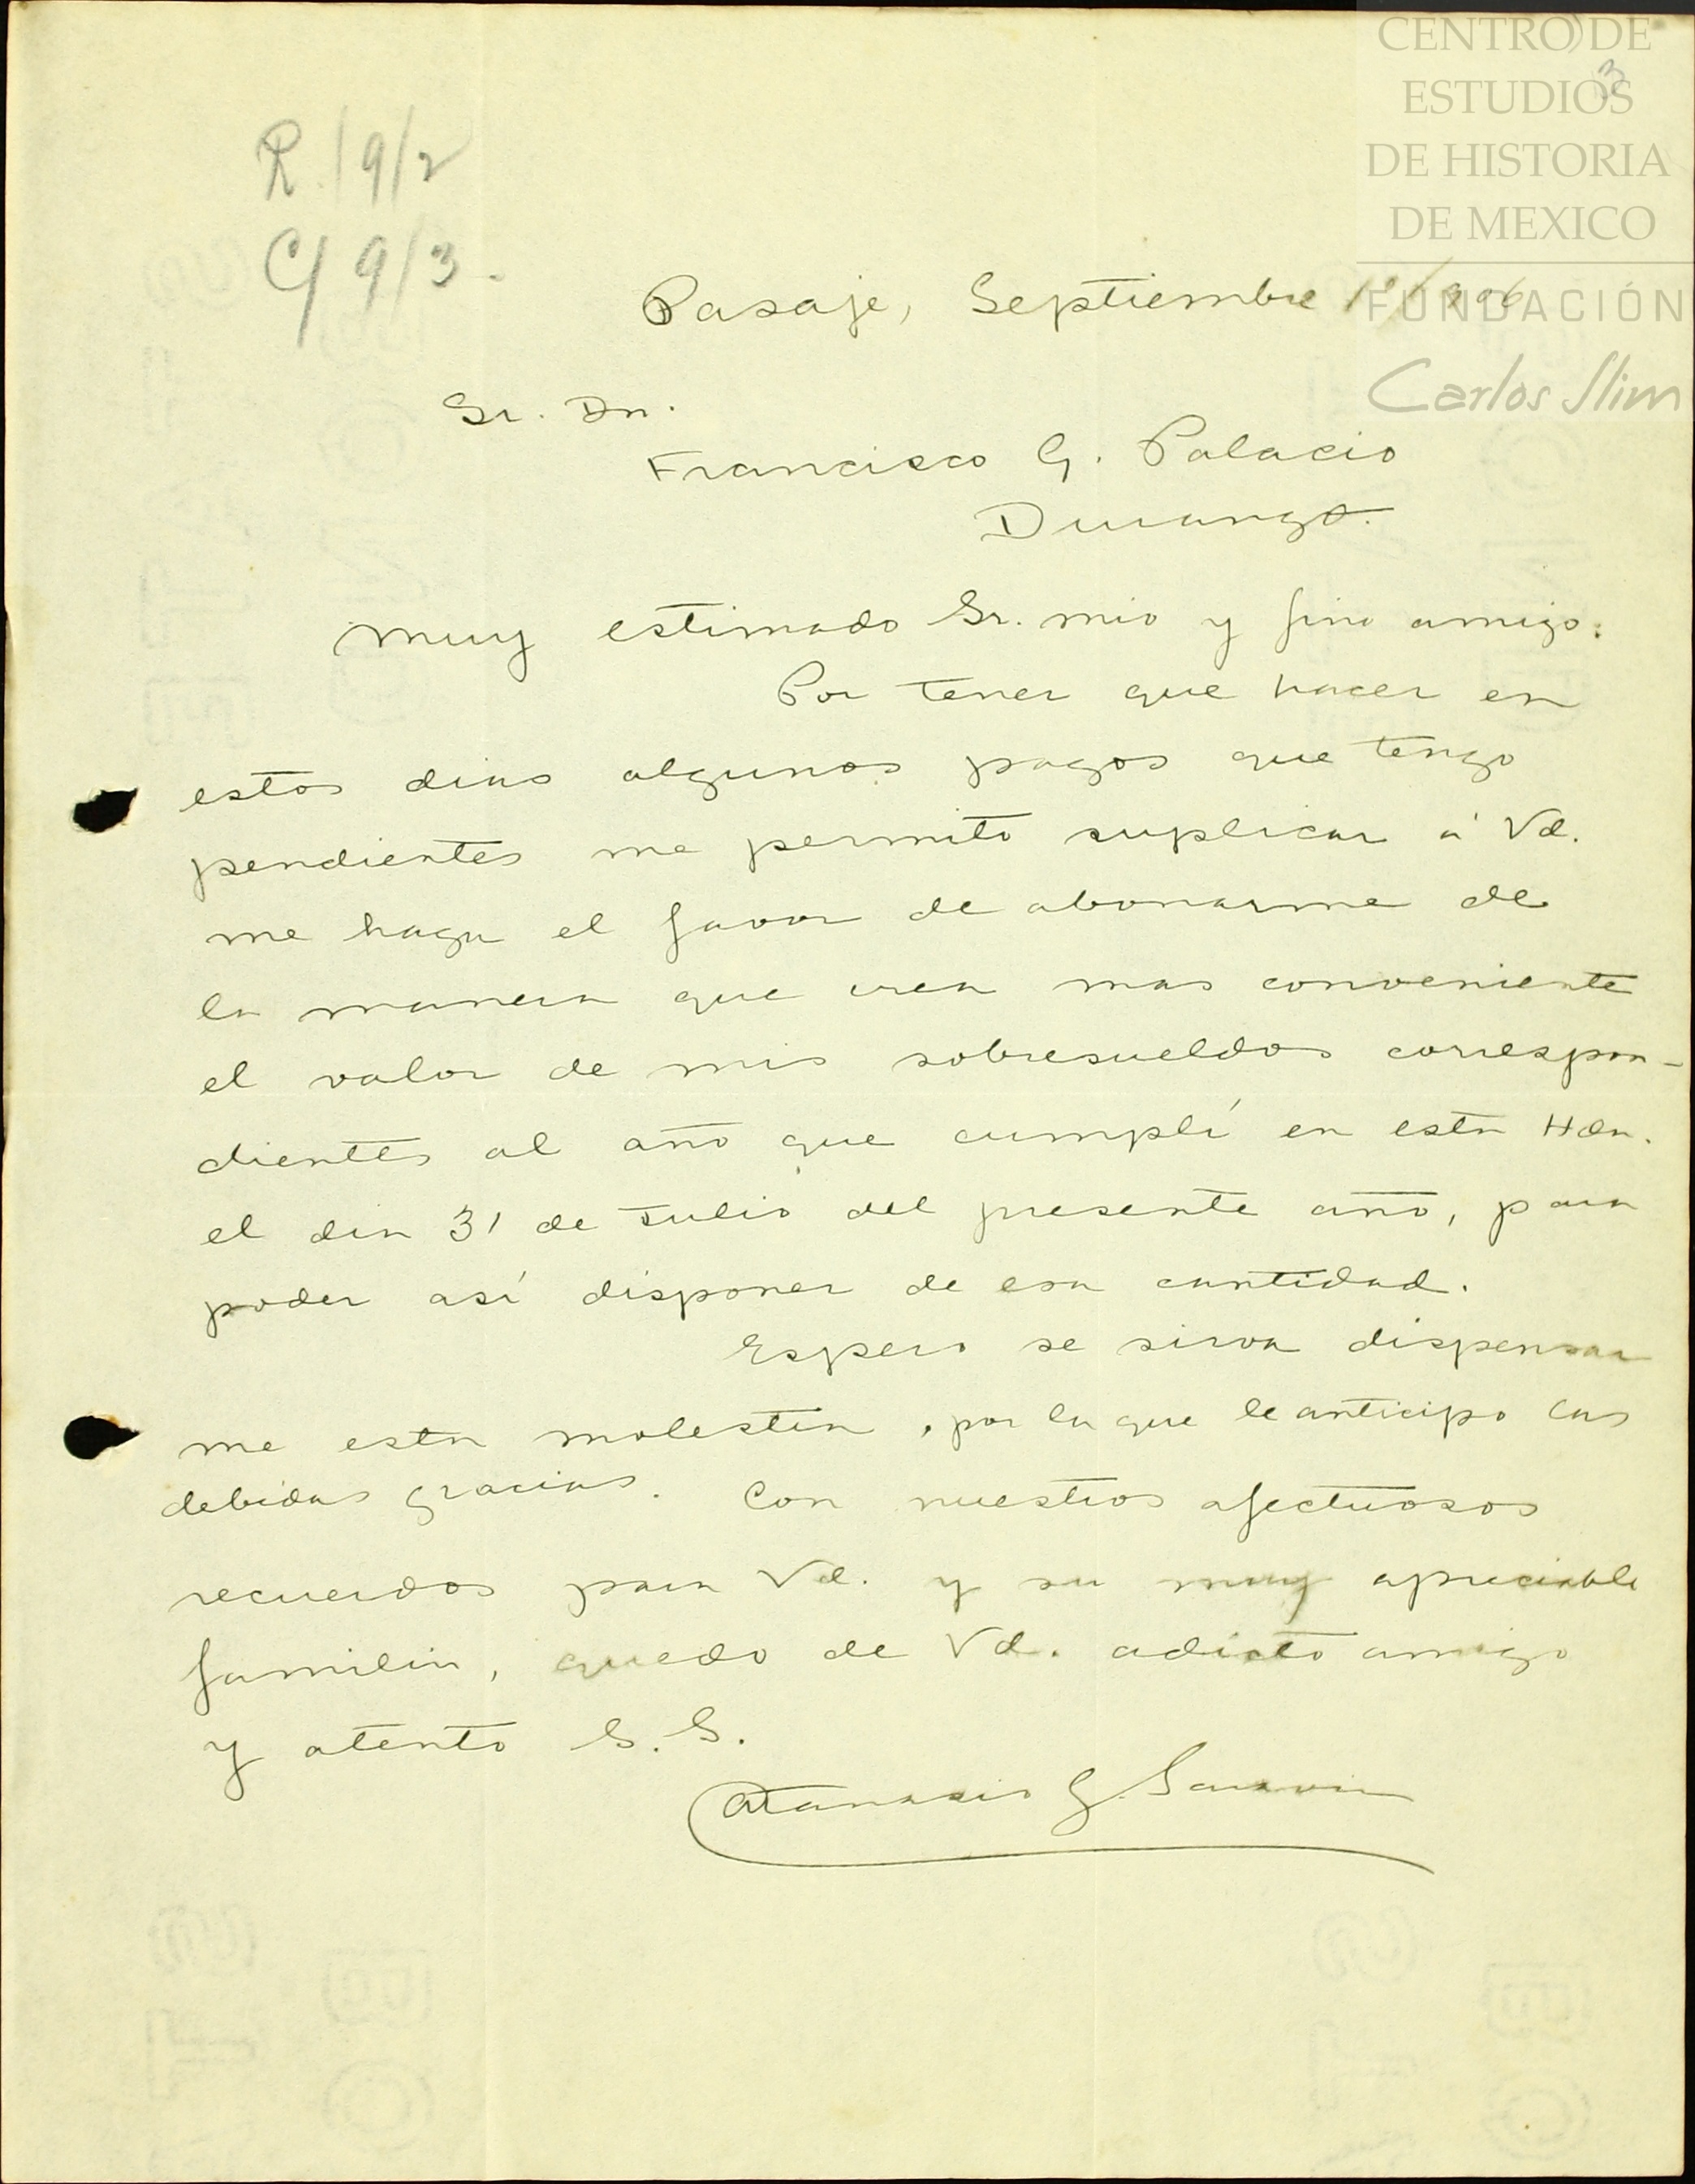 CENTRO DE
ESTUDIOS
DE HISTORIA
DE MEXICO
FUNDACIÓN
Carlos Slim
3
R. / 9/2
C/ 9/3.
Pasaje, Septiembre 1º/906
Sr. Dn.
Francisco G. Palacio
Durango.
Muy estimado Sr. mio y fino amigo:
Por tener que hacer en
estos dias algunos pagos que tengo
pendientes me permito suplicar á Vd.
me haga el favor de abonarme de
la manera que crea mas conveniente
el valor de mis sobresueldos correspon-
dientes al año que cumplí en esta Hda.
el dia 31 de Julio del presente año, para
poder así disponer de esa cantidad.
Espero se sirva dispensar
me esta molestia, por la que le anticipo las
debidas gracias. Con nuestros afectuosos
recuerdos para Vd. y su muy apreciable
familia, quedo de Vd. adicto amigo
y atento S. S.
Atanasio G. Saravia